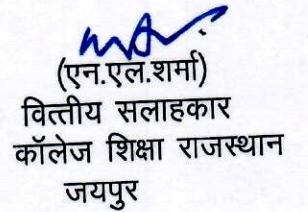 (एन.एल.शर्मा)
वित्तीय सलाहकार
कॉलेज शिक्षा राजस्थान
जयपुर